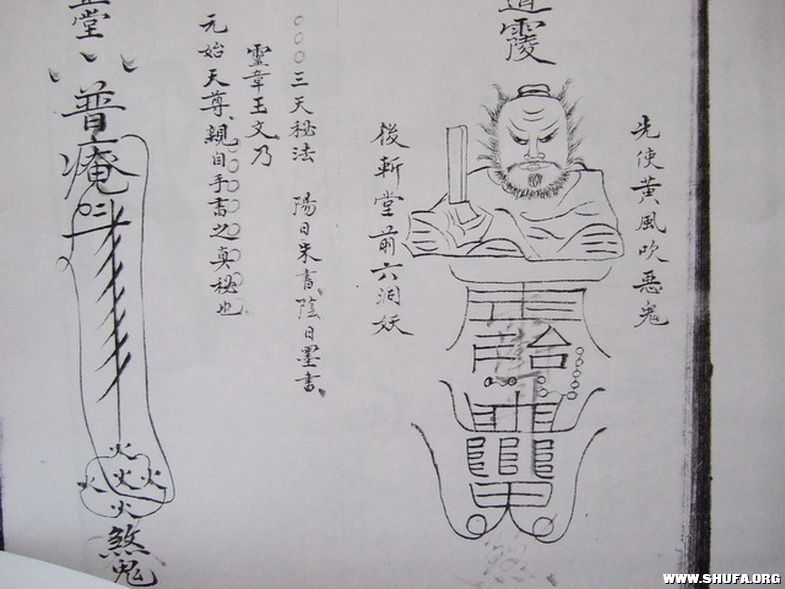 道霞
先使黃風吹惡鬼
後斬堂前六洞妖
三天秘法 陽日朱書、陰日墨書、
靈章玉文、乃
元始天尊、親自手書之真秘也
堂
普庵
火
火火火
火
煞鬼
WWW.SHUFA.ORG